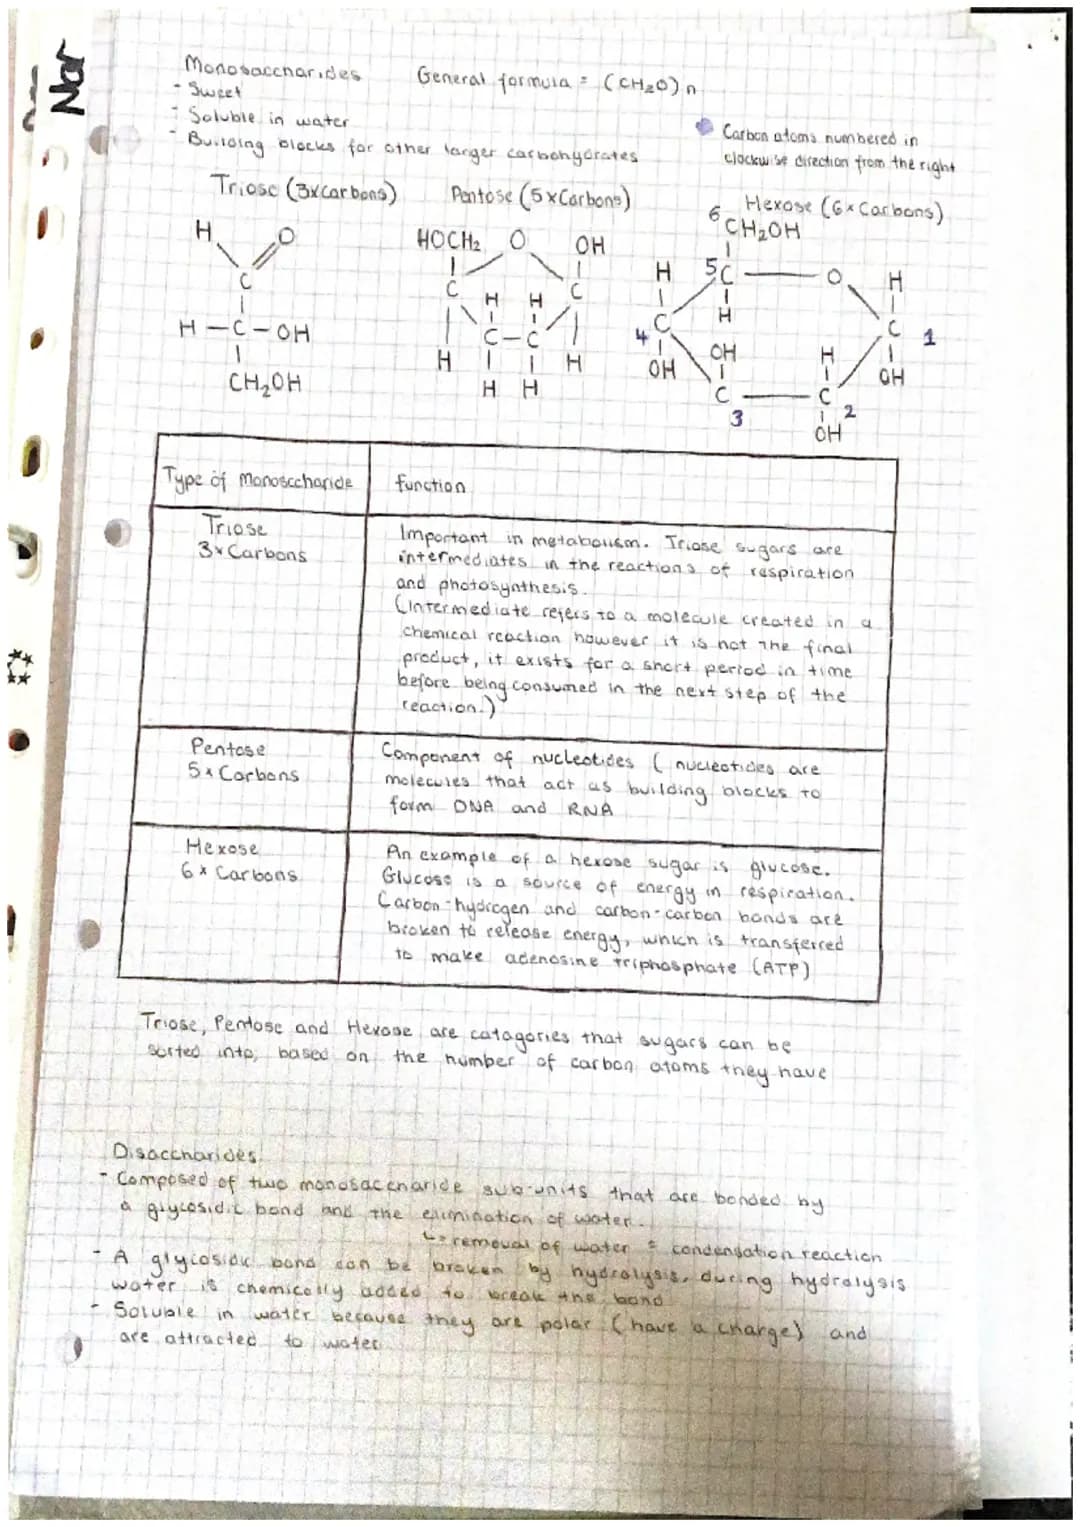 Nar
Monosaccharides General formula = (CH₂O)n
- Sweet
- Soluble in water
- Building blocks for other larger carbohydrates
Carbon atoms numbered in
clockwise direction from the right
Triose (3xCarbons) Pentose (5xCarbons) Hexose (6xCarbons)
H O
C
H-C-OH
CH₂OH
HOCH₂ O OH
C H H C
C-C
H H
H H
6 CH₂OH
H 5C O H
C H C 1
4
OH OH H OH
C C
3 2
OH
Type of Monosccharide function
Triose
3x Carbons
Important in metabolism. Triose sugars are
intermediates in the reactions of respiration
and photosynthesis.
(Intermediate refers to a molecule created in a
chemical reaction however it is not the final
product, it exists for a short period in time
before being consumed in the next step of the
reaction.)
Pentose
5x Carbons
Component of nucleotides ( nucleotides are
molecules that act as building blocks to
form DNA and RNA
Hexose
6x Carbons
An example of a hexose sugar is glucose.
Glucose is a source of energy in respiration.
Carbon-hydrogen and carbon-carbon bonds are
broken to release energy, which is transferred
to make adenosine triphosphate (ATP)
Triose, Pentose and Hexose are catagories that sugars can be
sorted into, based on the number of carbon atoms they have
Disaccharides
- Composed of two monosaccharide sub-units that are bonded by
a glycosidic bond and the elimination of water.
↳ removal of water = condensation reaction
- A glycosidic bond can be broken by hydrolysis, during hydrolysis
water is chemically added to break the bond
- Soluble in water because they are polar (have a charge) and
are attracted to water